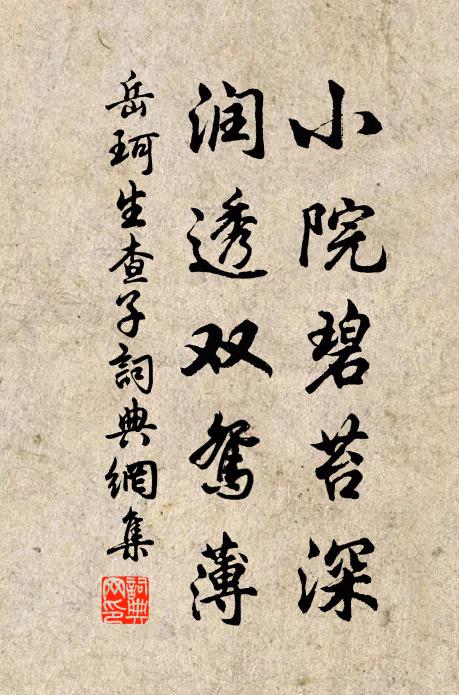 小院碧苔深
润透双鸳薄
岳珂生查子詞典網集
詞典网印